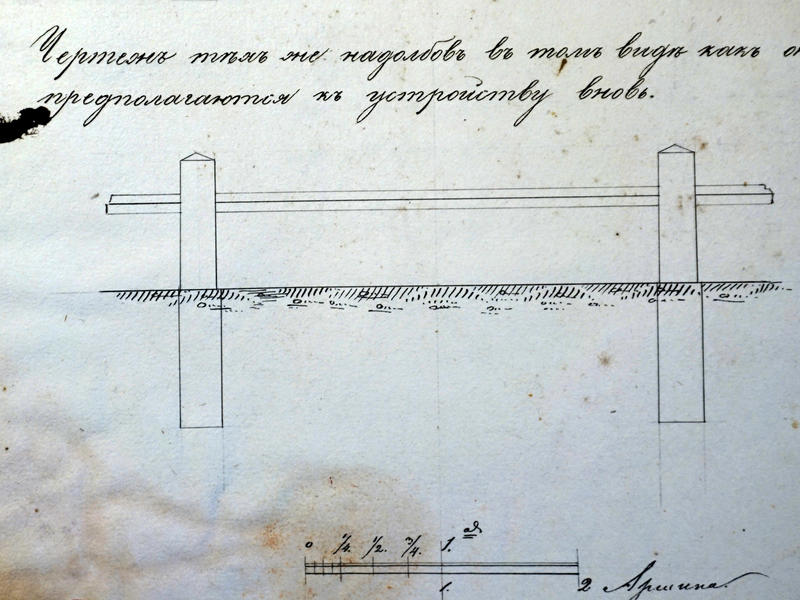 Чертежъ тѣхъ же надолбовъ въ томъ видѣ какъ
предполагаются къ устройству вновь.
0 1/4. 1/2. 3/4. 1.
1. 2 Аршина.